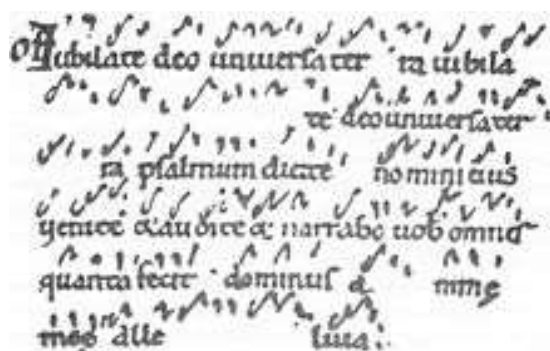 Off Iubilate deo universa ter ra iubila
te deo universa ter
ra psalmum dicite nomini eius
venite & audite & narrabo vob omnis
quanta fecit dominus & nime
meo alle luia.